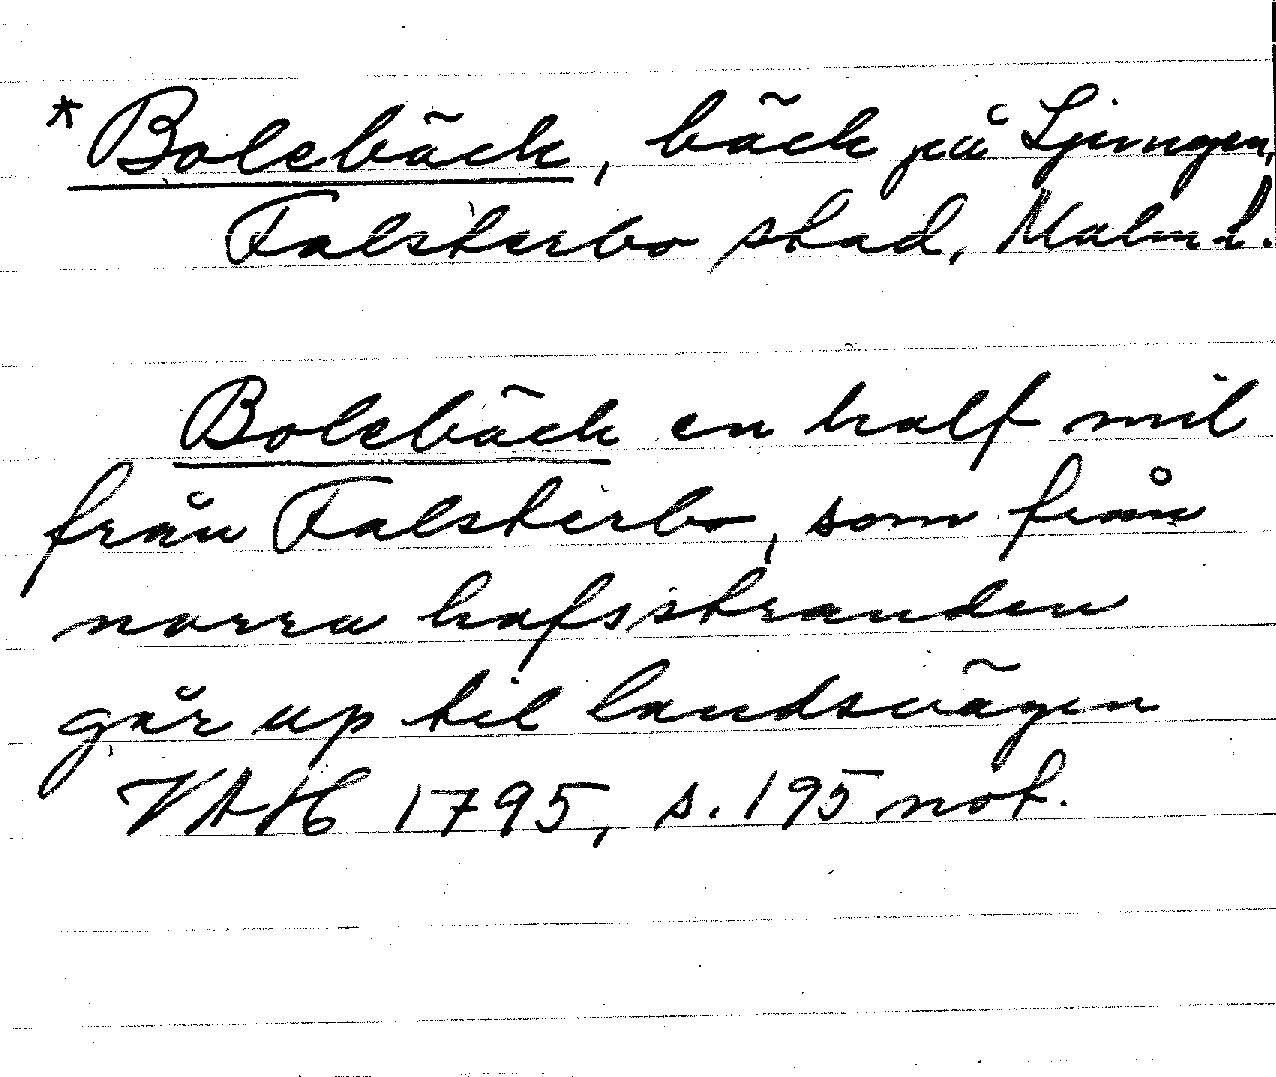 *Bolebäck, bäck på Ljungen,
Falsterbo stad, Malm. l.
Bolebäck en half mil
från Falsterbo, som från
norra hafsstranden
går up til landsvägen
VAH 1795, s. 195 not.